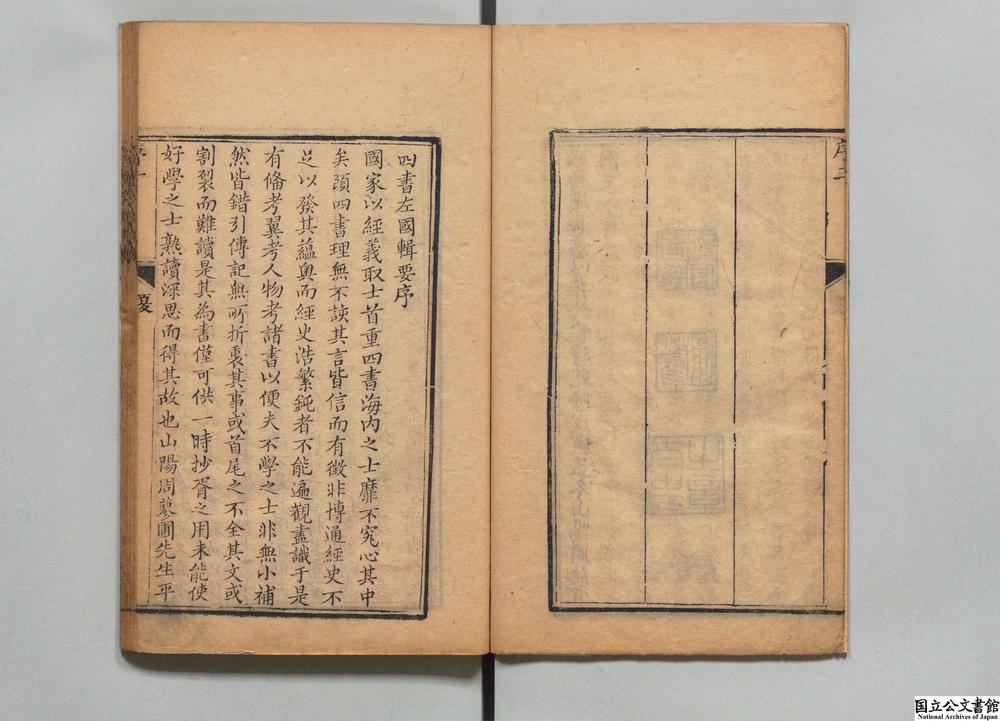 四書左國輯要序
國家以經義取士首重四書海内之士靡不究心其中
矣顧四書理無不該其言皆信而有徵非博通經史不
足以發其蘊奥而經史浩繁鈍者不能遍觀盡識于是
有俻考翼考人物考諸書以便夫不學之士非無小補
然皆錯引傳記無所折衷其事或首尾之不全其文或
割裂而難讀是其為書僅可供一時抄胥之用未能使
好學之士熟讀深思而得其故也山陽周蓼圃先生平
国立公文書館
National Archives of Japan